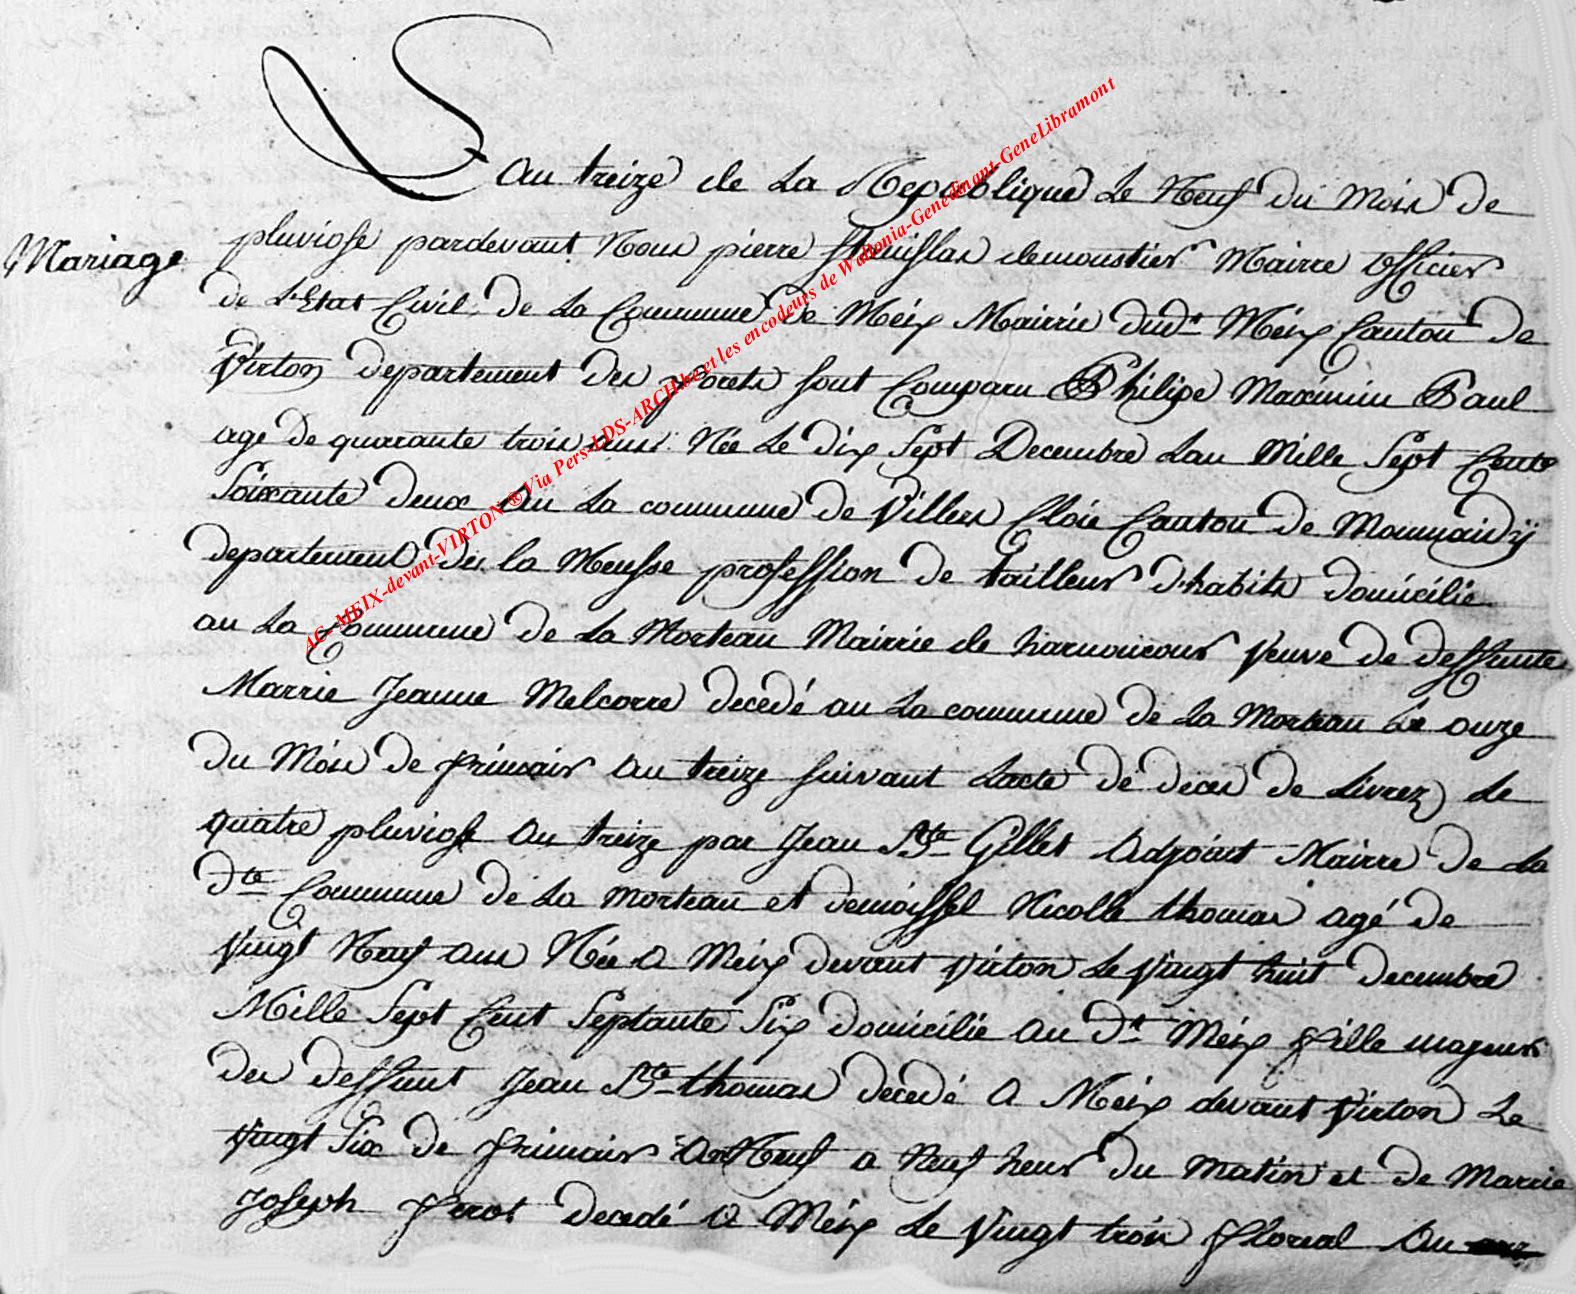 L'an treize de La Republique Le Neuf du Mois de
Mariage
pluviose pardevant Nous pierre stanislas demoustier Mairre officier
de L'Etat Civil de La Commune de Méix Mairrie dudt Méix Canton de
Virton departement des forets sont Comparu Philipe Maximin Paul
agé de quarante trois ans Née Le dix Sept Decembre Lan Mille Sept Cente
Soixante deux au La commune de Villers Cloie Canton de Monmaidÿ
departement de la Meusse profession de tailleur d'habits domicilié
au La Commune de La Morteau Mairrie de harnoncour Veuve de deffunte
Marrie Jeanne Melcorre decedé au La commune de La Morteau Le onze
du Mois de frimair an treize suivant Lacte de deces de Livrez Le
quatre pluviose an treize par Jean Bte Gillet Adjoint Mairre de La
dte Commune de La Morteau et demoissel Nicolle thomas agé de
Vingt Neuf ans Née a Méix devant Virton Le Vingt huit decembre
Mille Sept Cent Septante Six domicilié au dt Méix fille majeur
des deffunt Jean Bte thomas decedé a Méix devant Virton Le
Vingt Six de frimair an Neuf a Neuf heur du matin et de Marrie
Joseph ferot decedé a Méix Le Vingt trois florial an
AC- MEIX-devant-VIRTON ® Via Pers-LDS-ARCH.be et les encodeurs de Wallonia-Genedinant-GeneLibramont